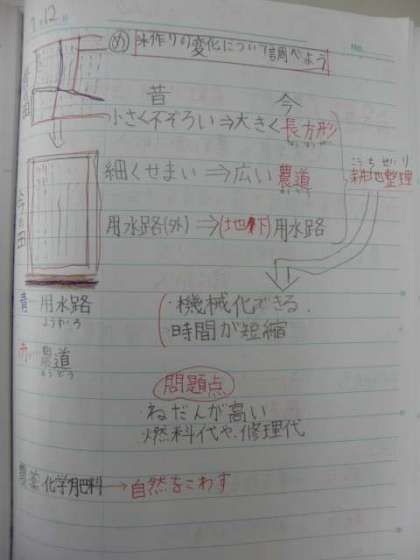 12
め 米作りの変化について調べよう
昔 今
小さく不ぞろい⇒大きく長方形
細くせまい⇒広い農道
用水路(外)⇒(地下)用水路
こうちせいり
耕地整理
今の田
・機械化できる
時間が短縮
青 用水路
ようすいろ
赤 農道
のうどう
問題点
・ねだんが高い
燃料代や修理代
農薬 化学肥料→自然をこわす